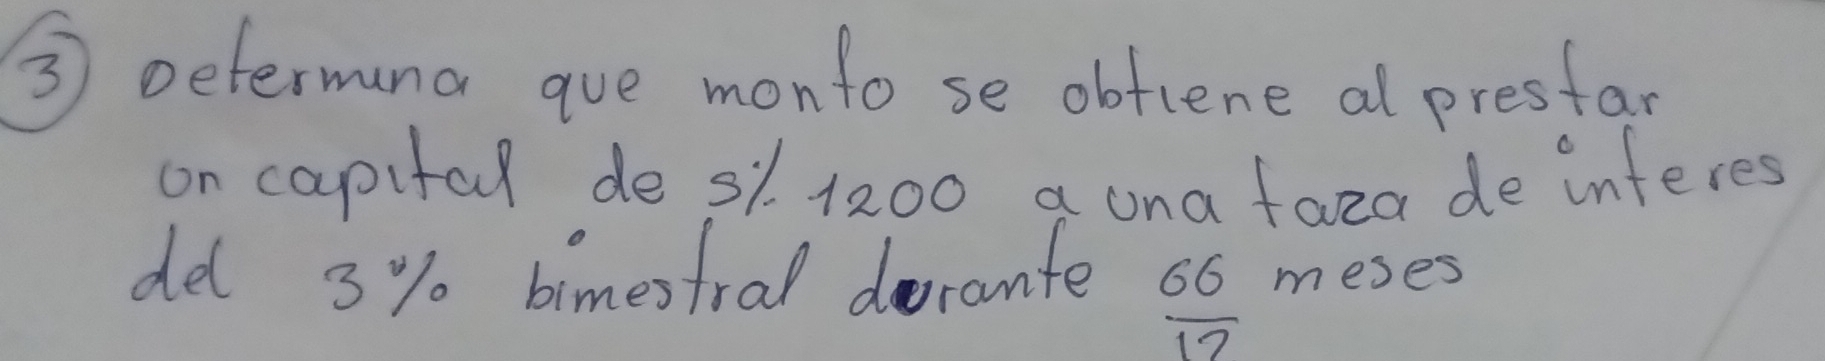 ③ Determina que monto se obtiene al prestar
un capital de s/. 1200 a una taza de interes
del 3% bimestral durante 66 meses
12